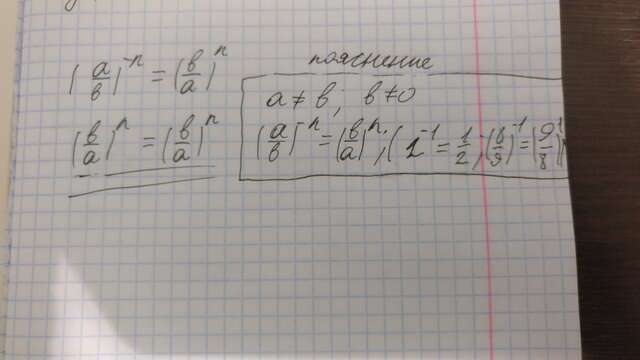 (a/b)^-n = (b/a)^n
(b/a)^n = (b/a)^n
пояснение
a ≠ b; b ≠ 0
(a/b)^-n = (b/a)^n; (2^-1 = 1/2; (8/9)^-1 = (9/8)^1